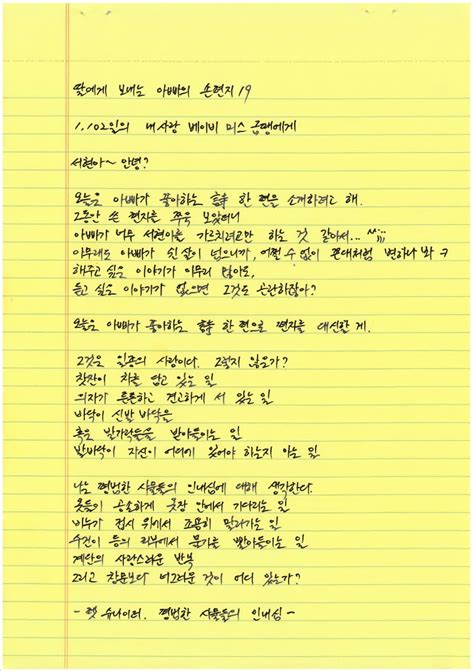 딸에게 보내는 아빠의 손편지 19
1,102일의 내사랑 베이비 미스 곰팽에게
서현아~ 안녕?
오늘은 아빠가 좋아하는 詩 한 편을 소개하려고 해.
그동안 쓴 편지를 쭈욱 보았더니
아빠가 너무 서현아를 가르치려고만 하는 것 같아서... ^^;;;
아무래도 아빠가 쉰 살이 넘으니까, 어쩔 수 없이 꼰대처럼 변하나 봐 ㅋ
해주고 싶은 이야기가 아무리 많아도,
듣고 싶은 이야기가 없으면 그것도 곤란하잖아?
오늘은 아빠가 좋아하는 詩 한 편으로 편지를 대신할 게.
그것은 일종의 사랑이다. 그렇지 않은가?
찻잔이 차를 담고 있는 일
의자가 튼튼하고 견고하게 서 있는 일
바닥이 신발 바닥을
혹은 발가락들을 받아들이는 일
발바닥이 자신이 어디에 있어야 하는지 아는 일
나는 평범한 사물들의 인내심에 대해 생각한다.
옷들이 공손하게 옷장 안에서 기다리는 일
비누가 접시 위에서 조용히 말라가는 일
수건이 등의 피부에서 물기를 빨아들이는 일
계단의 사랑스러운 반복
그리고 창문보다 너그러운 것이 어디 있는가?
- 팻 슈나이더. 평범한 사물들의 인내심 -